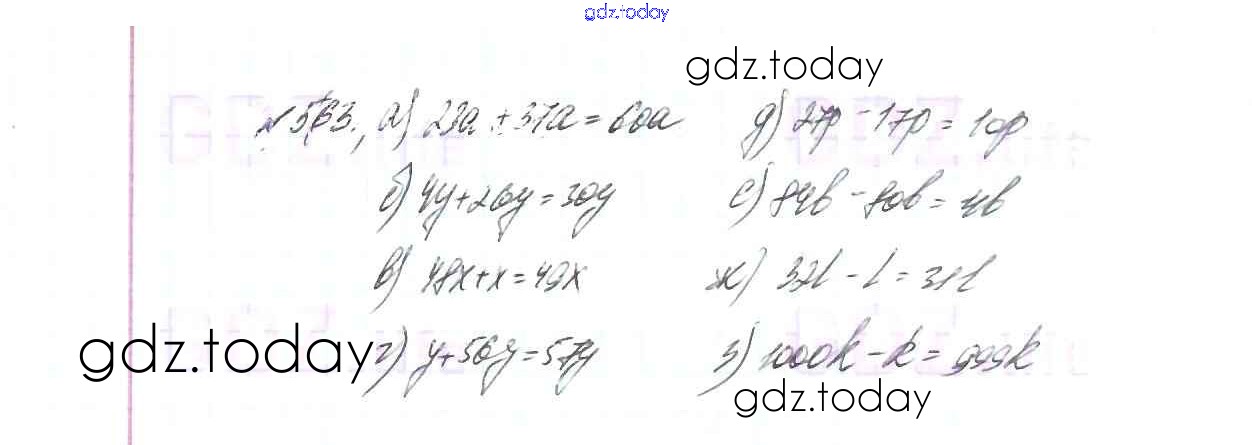 gdz.today
gdz.today
№ 563. а) 23a + 37a = 60a
д) 27p - 17p = 10p
б) 4y + 26y = 30y
е) 84b - 80b = 4b
в) 48x + x = 49x
ж) 32l - l = 31l
gdz.today
г) y + 56y = 57y
з) 1000k - k = 999k
gdz.today